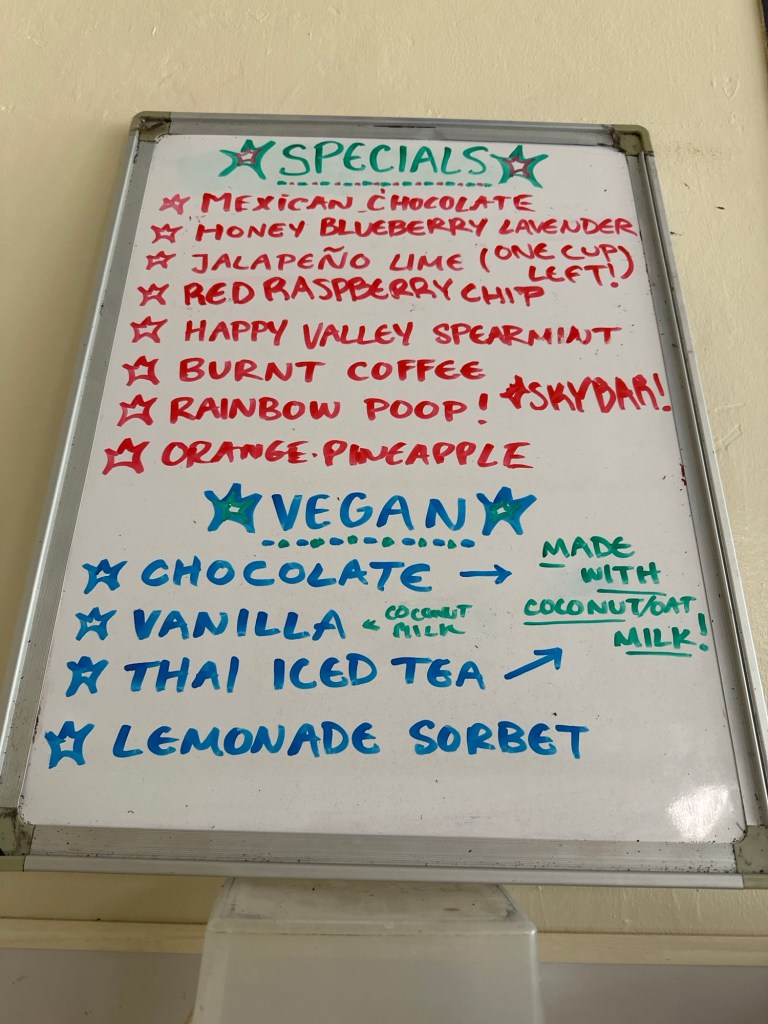 SPECIALS
MEXICAN CHOCOLATE
HONEY BLUEBERRY LAVENDER
JALAPEÑO LIME (ONE CUP LEFT!)
RED RASPBERRY CHIP
HAPPY VALLEY SPEARMINT
BURNT COFFEE
SKYBAR!
RAINBOW POOP!
ORANGE-PINEAPPLE
VEGAN
CHOCOLATE →
VANILLA ← COCONUT MILK
THAI ICED TEA →
MADE
WITH
COCONUT/OAT
MILK!
LEMONADE SORBET